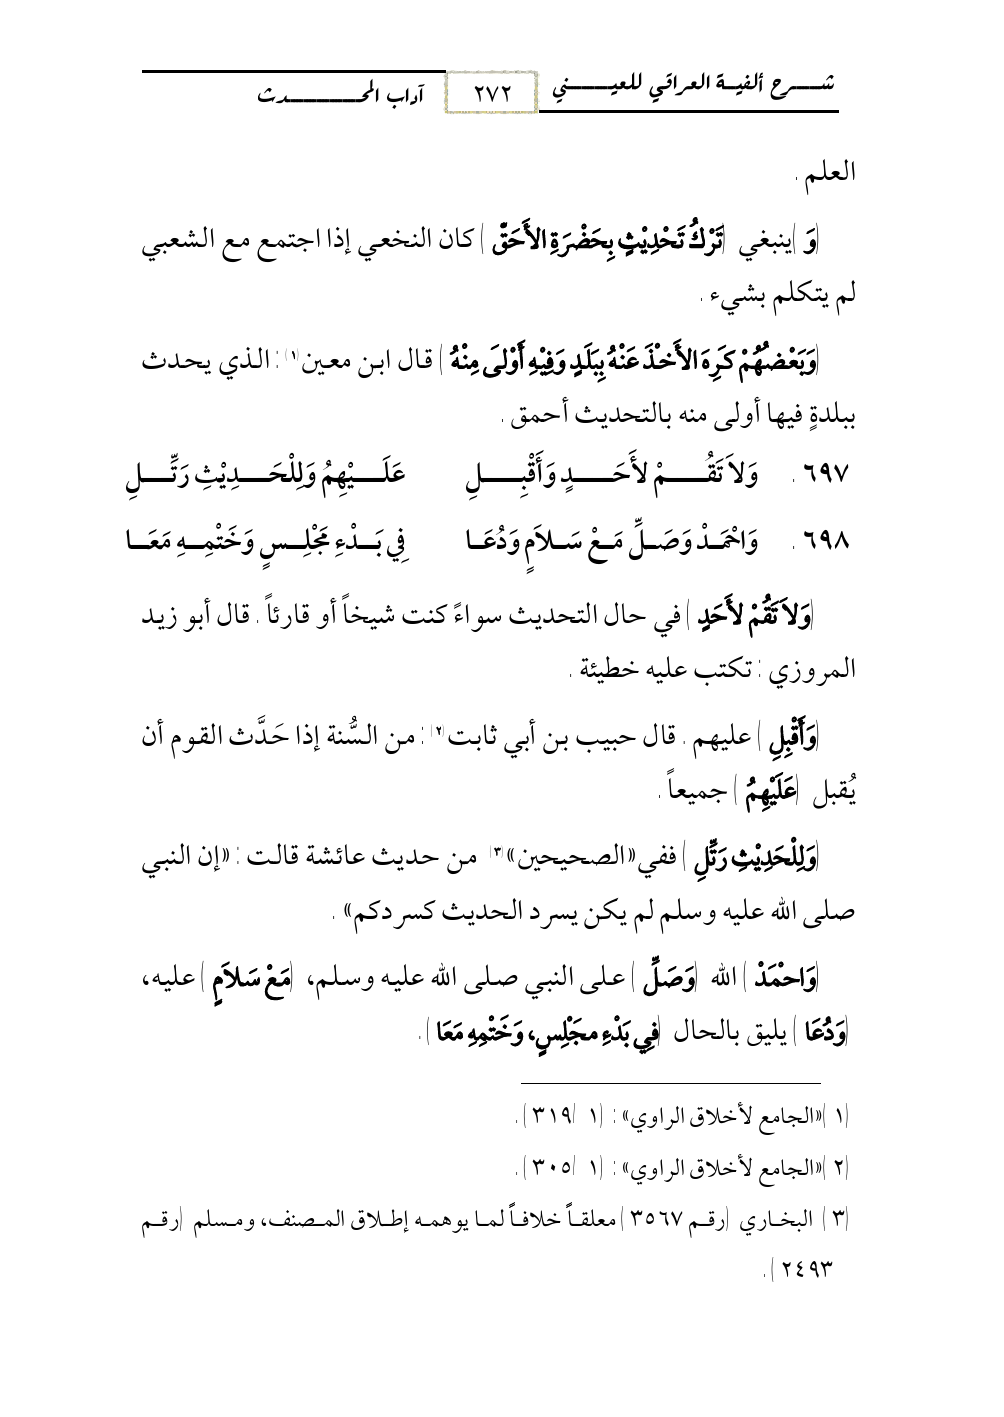 شرح ألفية العراقي للعيني ٢٧٢ آداب المحدث
العلم .
(وَ) ينبغي (تَرْكُ تَحْدِيْثٍ بِحَضْرَةِ الأَحَقِّ) كان النخعي إذا اجتمع مع الشعبي
لم يتكلم بشيء .
(وَبَعْضُهُمْ كَرِهَ الأَخْذَ عَنْهُ بِبَلَدٍ وَفِيْهِ أَوْلَى مِنْهُ) قال ابن معين(١): الذي يحدث
ببلدةٍ فيها أولى منه بالتحديث أحمق .
٦٩٧. وَلاَ تَقُمْ لأَحَدٍ وَأَقْبِلِ عَلَيْهِمُ وَلِلْحَدِيْثِ رَتِّلِ
٦٩٨. وَاحْمَدْ وَصَلِّ مَعْ سَلاَمٍ وَدُعَا فِي بَدْءِ مَجْلِسٍ وَخَتْمِهِ مَعَا
(وَلاَ تَقُمْ لأَحَدٍ) في حال التحديث سواءً كنت شيخاً أو قارئاً . قال أبو زيد
المروزي : تكتب عليه خطيئة .
(وَأَقْبِلِ) عليهم . قال حبيب بن أبي ثابت(٢): من السُّنة إذا حَدَّث القوم أن
يُقبل (عَلَيْهِمُ) جميعاً .
(وَلِلْحَدِيْثِ رَتِّلِ) ففي «الصحيحين»(٣) من حديث عائشة قالت : «إن النبي
صلى الله عليه وسلم لم يكن يسرد الحديث كسردكم» .
(وَاحْمَدْ) الله (وَصَلِّ) على النبي صلى الله عليه وسلم، (مَعْ سَلاَمٍ) عليه،
(وَدُعَا) يليق بالحال (فِي بَدْءِ مجَلِْسٍ، وَخَتْمِهِ مَعَا).
(١) «الجامع لأخلاق الراوي» : (١/٣١٩).
(٢) «الجامع لأخلاق الراوي» : (١/٣٠٥).
(٣) البخاري (رقم ٣٥٦٧) معلقاً خلافاً لما يوهمه إطلاق المصنف، ومسلم (رقم
٢٤٩٣).